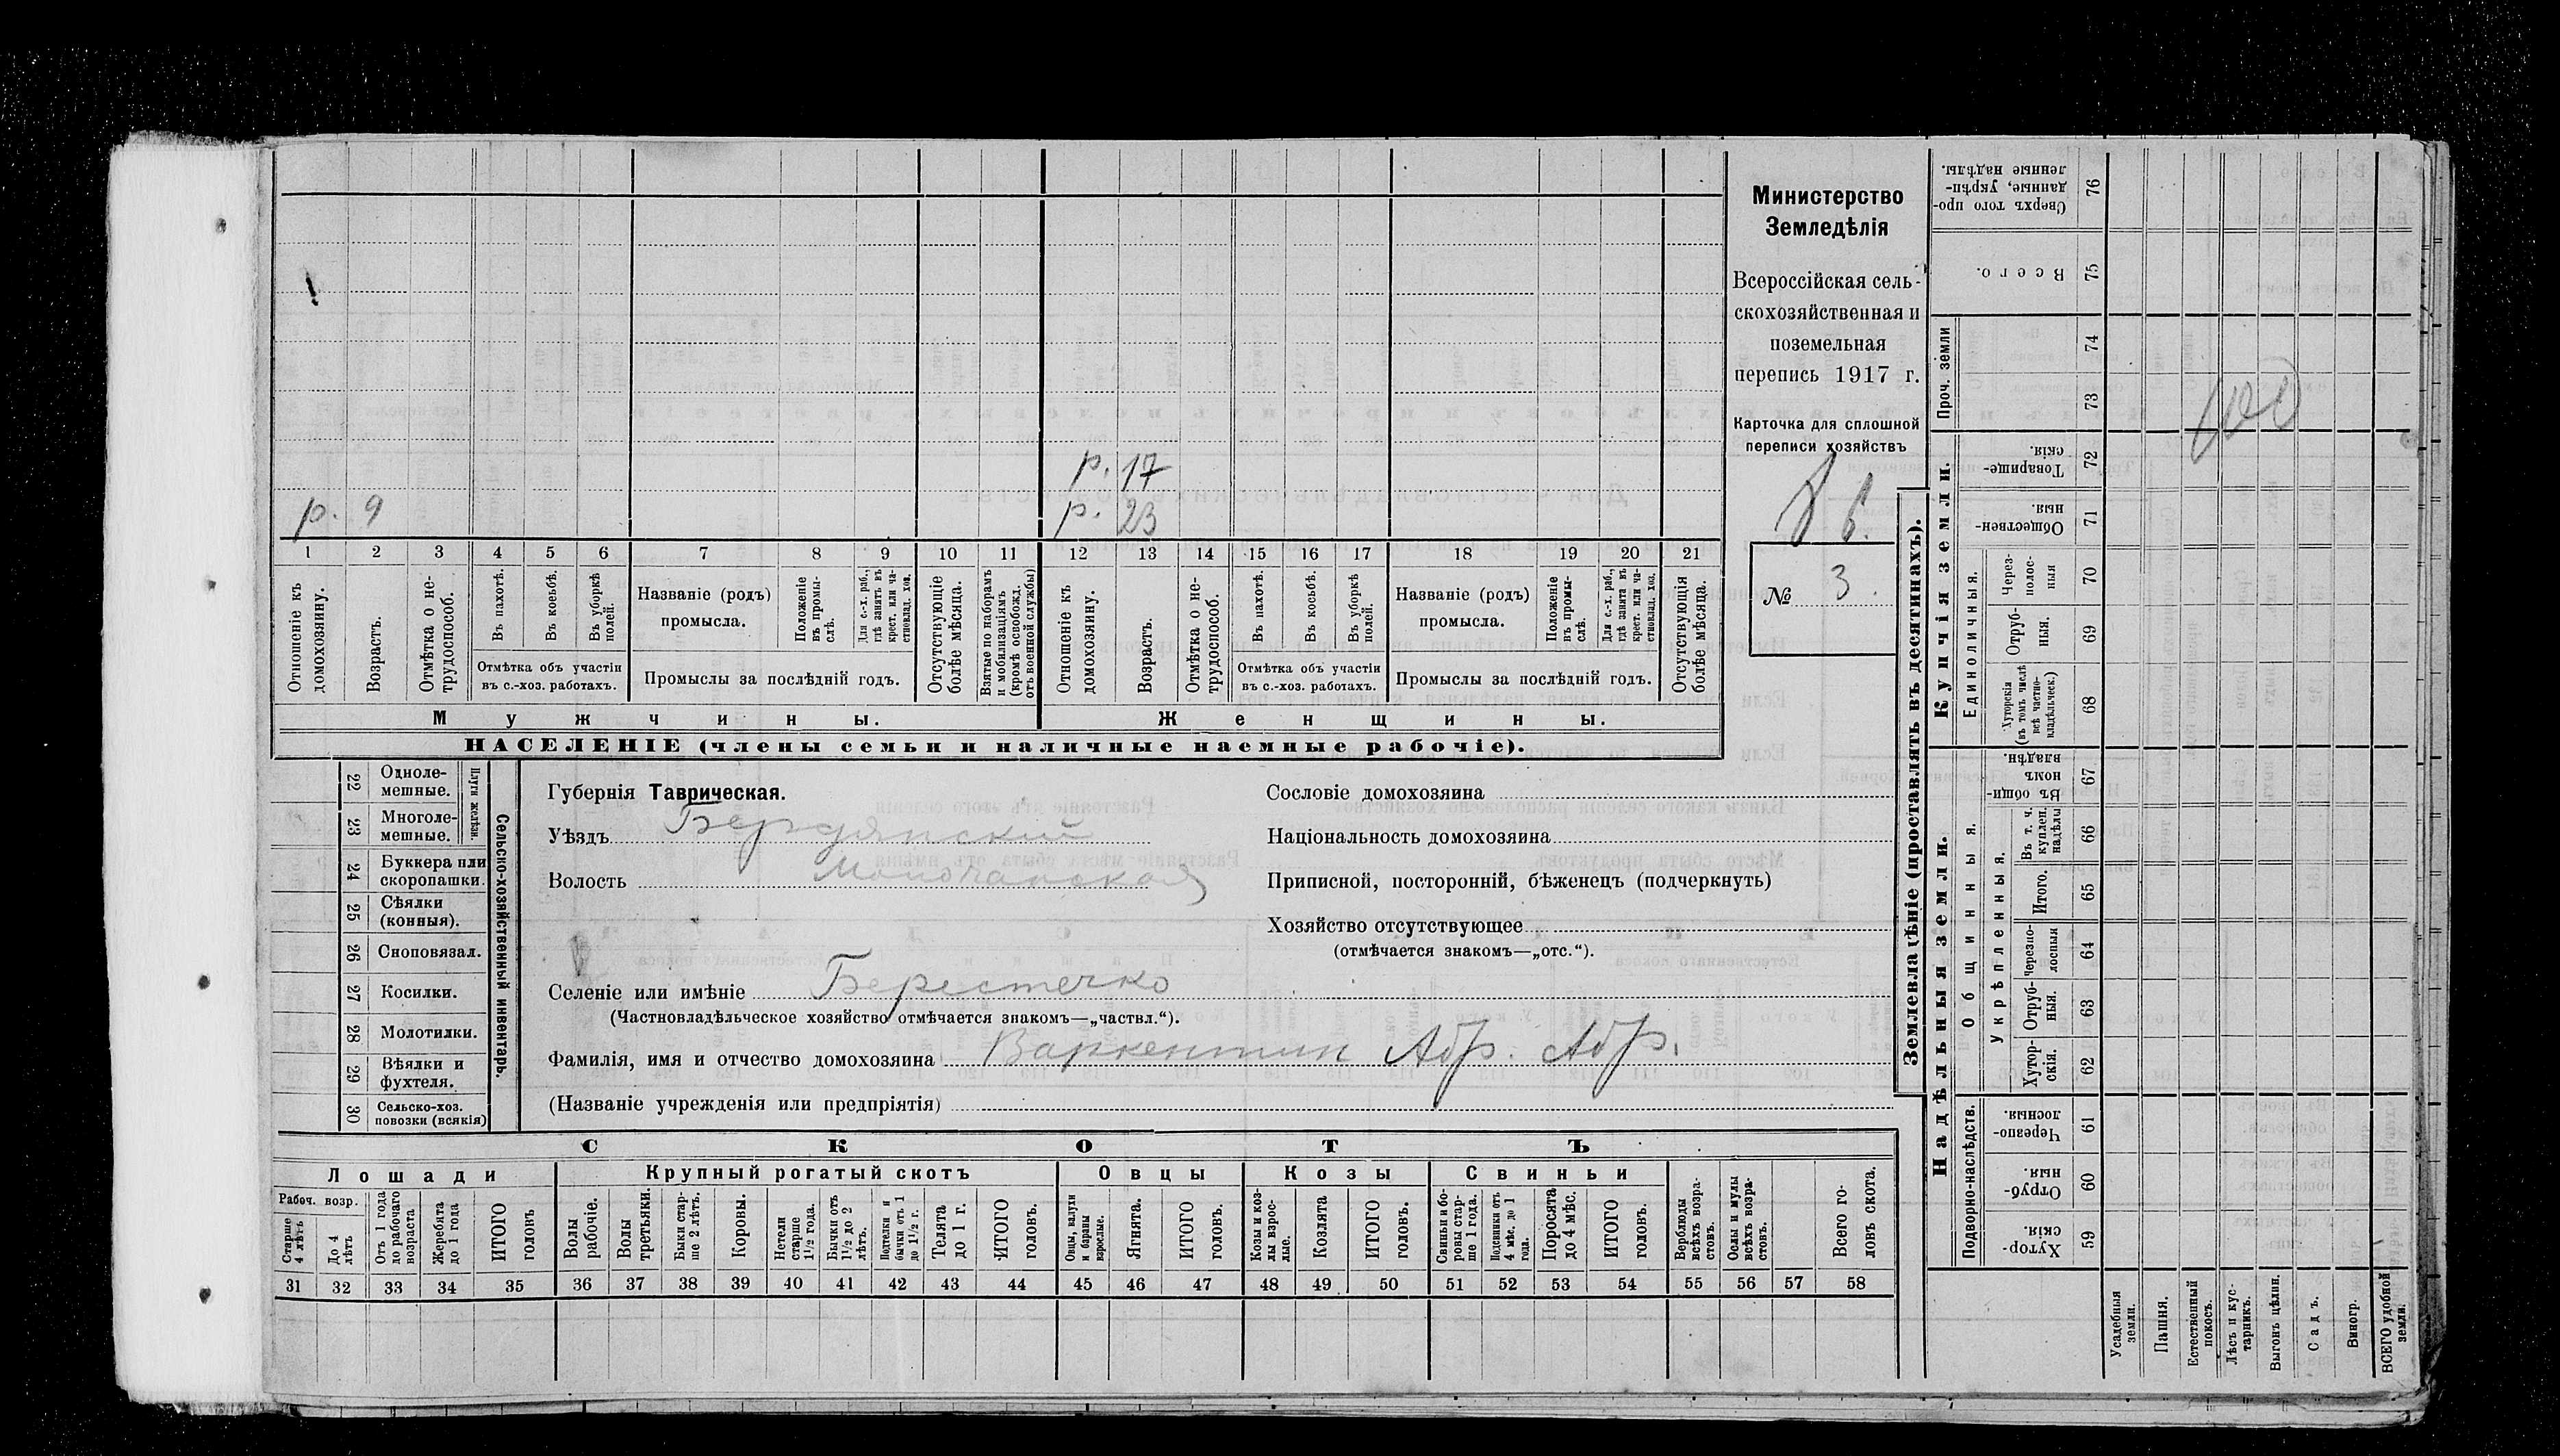 р. 17
р. 9
р. 23
1 2 3 4 5 6 7 8 9 10 11 12 13 14 15 16 17 18 19 20 21
Отношеніе къ домохозяину.
Возрастъ.
Отмѣтка о не-трудоспособ.
Въ пахотѣ.
Въ косьбѣ.
Въ уборкѣ полей.
Отмѣтка объ участіи
въ с.-хоз. работахъ.
Названіе (родъ)
промысла.
Положеніе въ промы-слѣ.
Для с.-х. раб., гдѣ занятъ въ крест. или ча-стновлад. хоз.
Промыслы за послѣдній годъ.
Отсутствующіе болѣе мѣсяца.
Взятые по наборамъ и мобилизаціямъ (кромѣ освобожд. отъ военной службы)
Отношеніе къ домохозяину.
Возрастъ.
Отмѣтка о не-трудоспособ.
Въ пахотѣ.
Въ косьбѣ.
Въ уборкѣ полей.
Отмѣтка объ участіи
въ с.-хоз. работахъ.
Названіе (родъ)
промысла.
Положеніе въ промы-слѣ.
Для с.-х. раб., гдѣ занята въ крест. или ча-стновлад. хоз.
Промыслы за послѣдній годъ.
Отсутствующія болѣе мѣсяца.
Мужчины.
Женщины.
НАСЕЛЕНІЕ (члены семьи и наличные наемные рабочіе).
Министерство
Земледѣлія
Всероссійская сель-
скохозяйственная и
поземельная
перепись 1917 г.
Карточка для сплошной
переписи хозяйствъ
№ 3.
22 Одноле-мешные.
23 Многоле-мешные.
Плуги желѣзн.
24 Буккера или скоропашки.
25 Сѣялки (конныя).
26 Сноповязал.
27 Косилки.
28 Молотилки.
29 Вѣялки и фухтеля.
30 Сельско-хоз. повозки (всякія)
Сельско-хозяйственный инвентарь.
Губернія Таврическая.
Уѣздъ Бердянскій
Волость
Сословіе домохозяина
Національность домохозяина
Приписной, посторонній, бѣженецъ (подчеркнуть)
Хозяйство отсутствующее
(отмѣчается знакомъ—„отс.“).
Селеніе или имѣніе Берестечко
(Частновладѣльческое хозяйство отмѣчается знакомъ—„частвл.“).
Фамилія, имя и отчество домохозяина Варкентин Абр. Абр.
(Названіе учрежденія или предпріятія)
СКОТЪ
Лошади
Крупный рогатый скотъ
Овцы
Козы
Свиньи
Рабоч. возр.
Старше 4 лѣтъ
До 4 лѣтъ
Отъ 1 года до рабочаго возраста
Жеребята до 1 года
ИТОГО головъ
Волы рабочіе.
Волы третьяки.
Быки стар-ше 2 лѣтъ.
Коровы.
Нетели старше 1½ года.
Бычки отъ 1½ до 2 лѣтъ.
Подтелки и бычки отъ 1 до 1½ г.
Телята до 1 г.
ИТОГО головъ.
Овцы, валухи и бараны взрослые.
Ягнята.
ИТОГО головъ.
Козы и коз-лы взрос-лые.
Козлята
ИТОГО головъ.
Свиньи и бо-ровы стар-ше 1 года.
Подсвинки отъ 4 мѣс. до 1 года.
Поросята до 4 мѣс.
ИТОГО головъ.
Верблюды всѣхъ возра-стовъ.
Ослы и мулы всѣхъ возра-стовъ.
Всего го-ловъ скота.
31 32 33 34 35 36 37 38 39 40 41 42 43 44 45 46 47 48 49 50 51 52 53 54 55 56 57 58
Землевладѣніе (проставлять въ десятинахъ).
Купчія земли.
Надѣльныя земли.
Сверхъ того про-данные, укрѣп-ленные надѣлы. 76
Всего. 75
Проч. земли
74
73
Товарище-скія. 72
Обществен-ныя. 71
Единоличныя.
Через-полос-ныя 70
Отруб-ныя. 69
Хуторскія (въ томъ числѣ всѣ частно-владѣльческ.) 68
Общинныя.
Въ общин-номъ владѣн. 67
Укрѣпленныя.
Въ т. ч. куплен. надѣлы 66
Итого. 65
Черезпо-лосныя 64
Отруб-ныя. 63
Хутор-скія. 62
Подворно-наслѣдств.
Черезпо-лосныя. 61
Отруб-ныя. 60
Хутор-скія. 59
Усадебныя земли.
Пашня.
Естественный покосъ.
Лѣсъ и кус-тарникъ.
Выгонъ цѣлин.
Садъ.
Виногр.
ВСЕГО удобной земли.